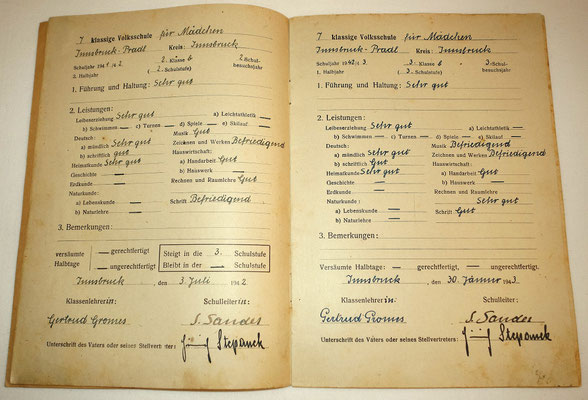 7 klassige Volksschule für Mädchen
Innsbruck-Pradl Kreis: Innsbruck
Schuljahr 1941/42 2. Klasse b 2 Schul-
2. Halbjahr (2. Schulstufe) besuchsjahr
1. Führung und Haltung: Sehr gut
2. Leistungen:
Leibeserziehung Sehr gut a) Leichtathletik —
b) Schwimmen — c) Turnen — d) Spiele — e) Skilauf —
Deutsch: Musik Gut
a) mündlich Sehr gut Zeichnen und Werken Befriedigend
b) schriftlich gut Hauswirtschaft:
Heimatkunde Sehr gut a) Handarbeit Gut
Geschichte — b) Hauswerk —
Erdkunde — Rechnen und Raumlehre Gut
Naturkunde:
a) Lebenskunde — Schrift Befriedigend
b) Naturlehre —
3. Bemerkungen:
versäumte — gerechtfertigt
Halbtage: — ungerechtfertigt
Steigt in die 3. Schulstufe
Bleibt in der — Schulstufe
Innsbruck, den 3. Juli 1942
Klassenlehrerin: Schulleiterin:
Gertrud Gromes S. Sander
Unterschrift des Vaters oder seines Stellvertreters: Stepanek
7 klassige Volksschule für Mädchen
Innsbruck-Pradl Kreis: Innsbruck
Schuljahr 1942/3 3. Klasse b 3 Schul-
1. Halbjahr (3. Schulstufe) besuchsjahr
1. Führung und Haltung: Sehr gut
2. Leistungen:
Leibeserziehung Sehr gut a) Leichtathletik —
b) Schwimmen — c) Turnen — d) Spiele — e) Skilauf —
Deutsch: Musik Befriedigend
a) mündlich Sehr gut Zeichnen und Werken Befriedigend
b) schriftlich Gut Hauswirtschaft:
Heimatkunde Sehr gut a) Handarbeit Gut
Geschichte — b) Hauswerk —
Erdkunde — Rechnen und Raumlehre
Naturkunde: Sehr gut
a) Lebenskunde — Schrift Gut
b) Naturlehre —
3. Bemerkungen:
Versäumte Halbtage: — gerechtfertigt, — ungerechtfertigt.
Innsbruck, den 30. Jänner 1943
Klassenlehrerin: Schulleiter:
Gertrud Gromes S. Sander
Unterschrift des Vaters oder seines Stellvertreters: Stepanek